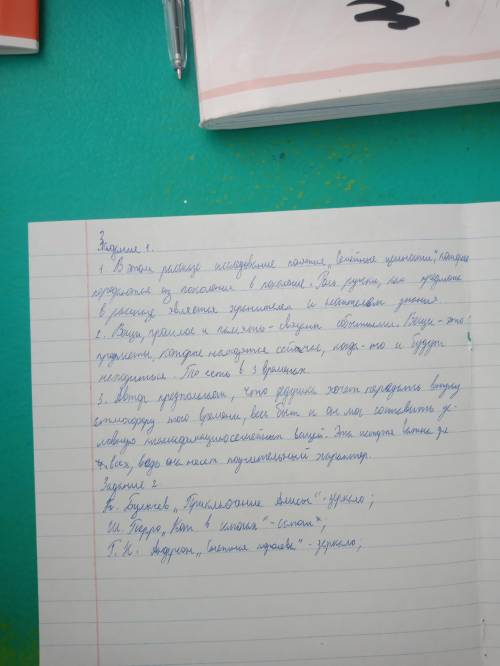 Задания 1.
1. В этом рассказе исследование понятия „Семейные ценности", которые
передаются из поколения в поколение. Роль ручки, как предмета
в рассказе является хранителем и носителем знания.
2. Вещи, прошлое и память - связаны событиями. Вещи - это
предметы, которые находятся сейчас, когда-то и будут
находиться. То есть в 3 временах.
3. Автор предполагает, что дедушка хочет передать внуку
атмосферу того времени, весь быт и он мог составить
вещей. Эта история важна для
всех, ведь она несет поучительный характер.
Задание 2
К. Булычев „Приключение Алисы" - зеркало;
Ш. Перро „Кот в сапогах" - сапоги;
Г. Х. Андерсен „Снежная королева" - зеркало;